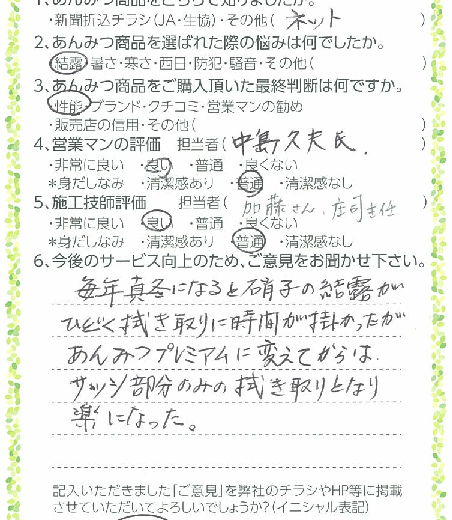 1.あんみつ商品をどちらで知りましたか。
・新聞折込チラシ(JA・生協)・その他( ネット )
2.あんみつ商品を選ばれた際の悩みは何でしたか。
・結露・暑さ・寒さ・西日・防犯・騒音・その他( )
3.あんみつ商品をご購入頂いた最終判断は何ですか。
・性能・ブランド・クチコミ・営業マンの勧め
・販売店の信用・その他( )
4.営業マンの評価 担当者( 中島久夫氏. )
・非常に良い ・良い ・普通 ・良くない
*身だしなみ ・清潔感あり ・普通 ・清潔感なし
5.施工技師評価 担当者( 加藤さん、庄司主任 )
・非常に良い ・良い ・普通 ・良くない
*身だしなみ ・清潔感あり ・普通 ・清潔感なし
6.今後のサービス向上のため、ご意見をお聞かせ下さい。
毎年真冬になると硝子の結露が
ひどく拭き取りに時間が掛かったが
あんみつプレミアムに変えてからは、
サッシ部分のみの拭き取りとなり
楽になった。
記入いただきました「ご意見」を弊社のチラシやHP等に掲載
させていただいてよろしいでしょうか?(イニシャル表記)